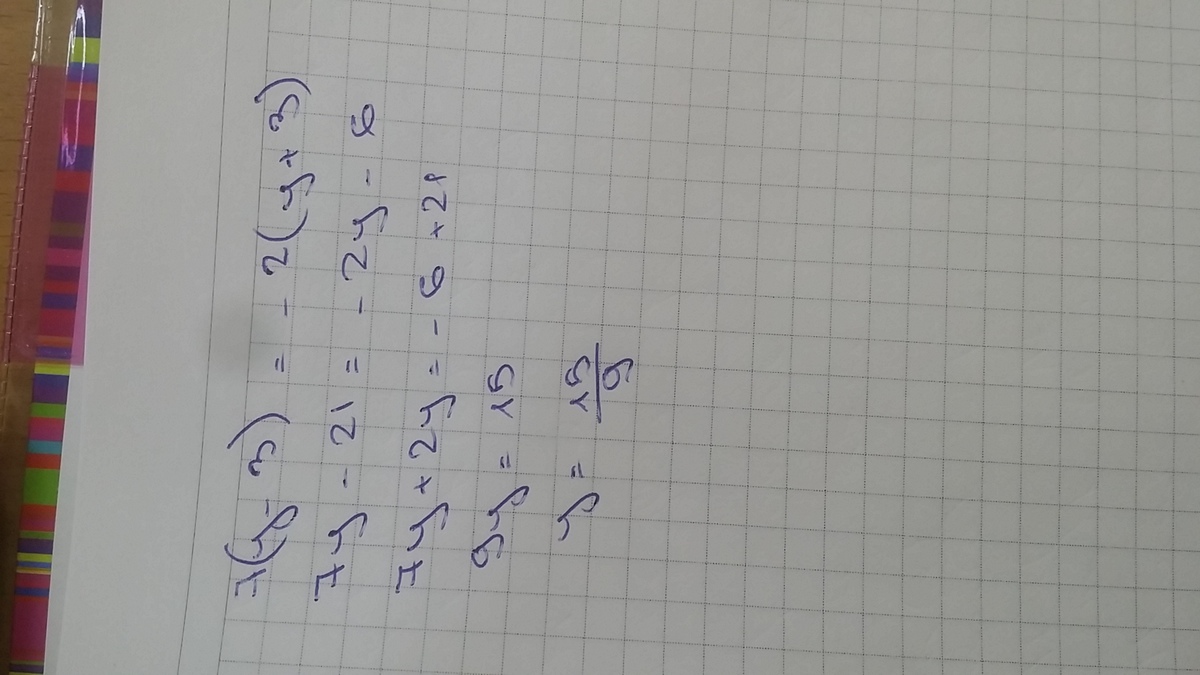 7(y - 3) = - 2(y + 3)
7y - 21 = - 2y - 6
7y + 2y = - 6 + 21
9y = 15
y = 15/9